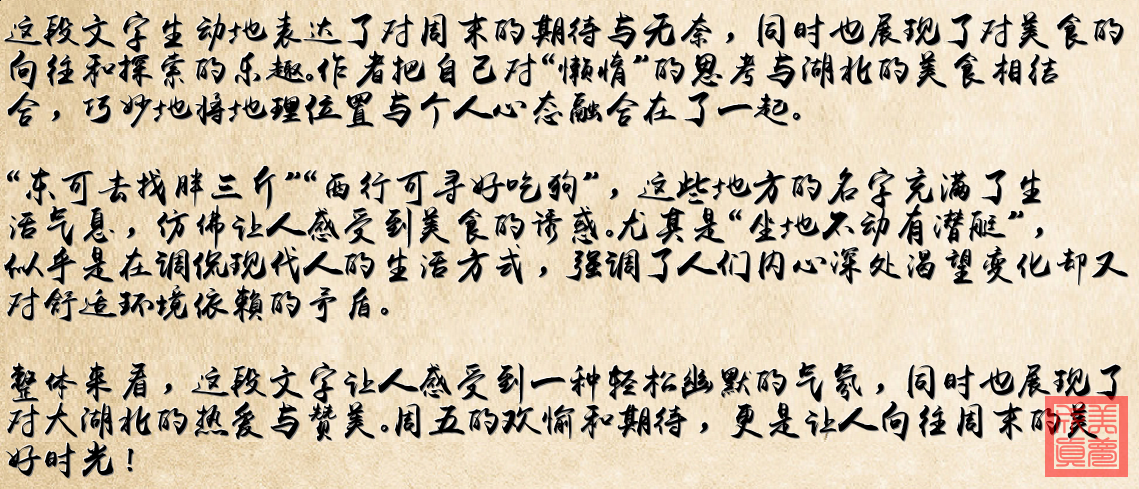 这段文字生动地表达了对周末的期待与无奈，同时也展现了对美食的
向往和探索的乐趣。作者把自己对“懒惰”的思考与湖北的美食相结
合，巧妙地将地理位置与个人心态融合在了一起。
“东可去找胖三斤”“西行可寻好吃狗”，这些地方的名字充满了生
活气息，仿佛让人感受到美食的诱惑。尤其是“坐地不动有潜艇”，
似乎是在调侃现代人的生活方式，强调了人们内心深处渴望变化却又
对舒适环境依赖的矛盾。
整体来看，这段文字让人感受到一种轻松幽默的气氛，同时也展现了
对大湖北的热爱与赞美。周五的欢愉和期待，更是让人向往周末的美
好时光！